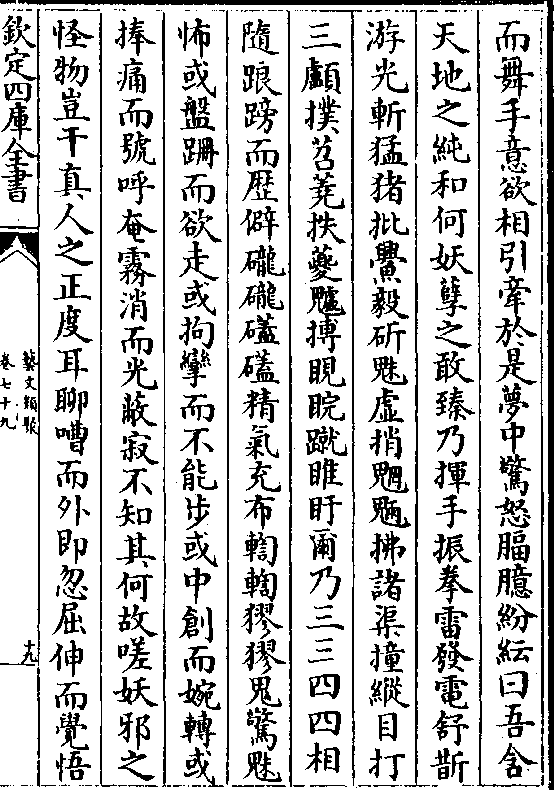 而舞手意欲相引牽於是夢中驚怒腷臆紛紜曰吾含
天地之純和何妖孽之敢臻乃揮手振拳雷發電舒斮
游光斬猛猪批鸒毅斫魅虚捎魍魎拂諸渠撞縱目打
三顱撲苕蕘抶夔魖搏睍睆蹴睢盱爾乃三三四四相
隨踉蹡而歴僻礲礲礚礚精氣充布輷輷䝤䝤鬼驚魅
怖或盤跚而欲走或拘攣而不能步或中創而婉轉或
捧痛而號呼奄霧消而光蔽寂不知其何故嗟妖邪之
怪物豈干真人之正度耳聊嘈而外即忽屈伸而覺悟
欽定四庫全書
藝文類聚
卷七十九
十九